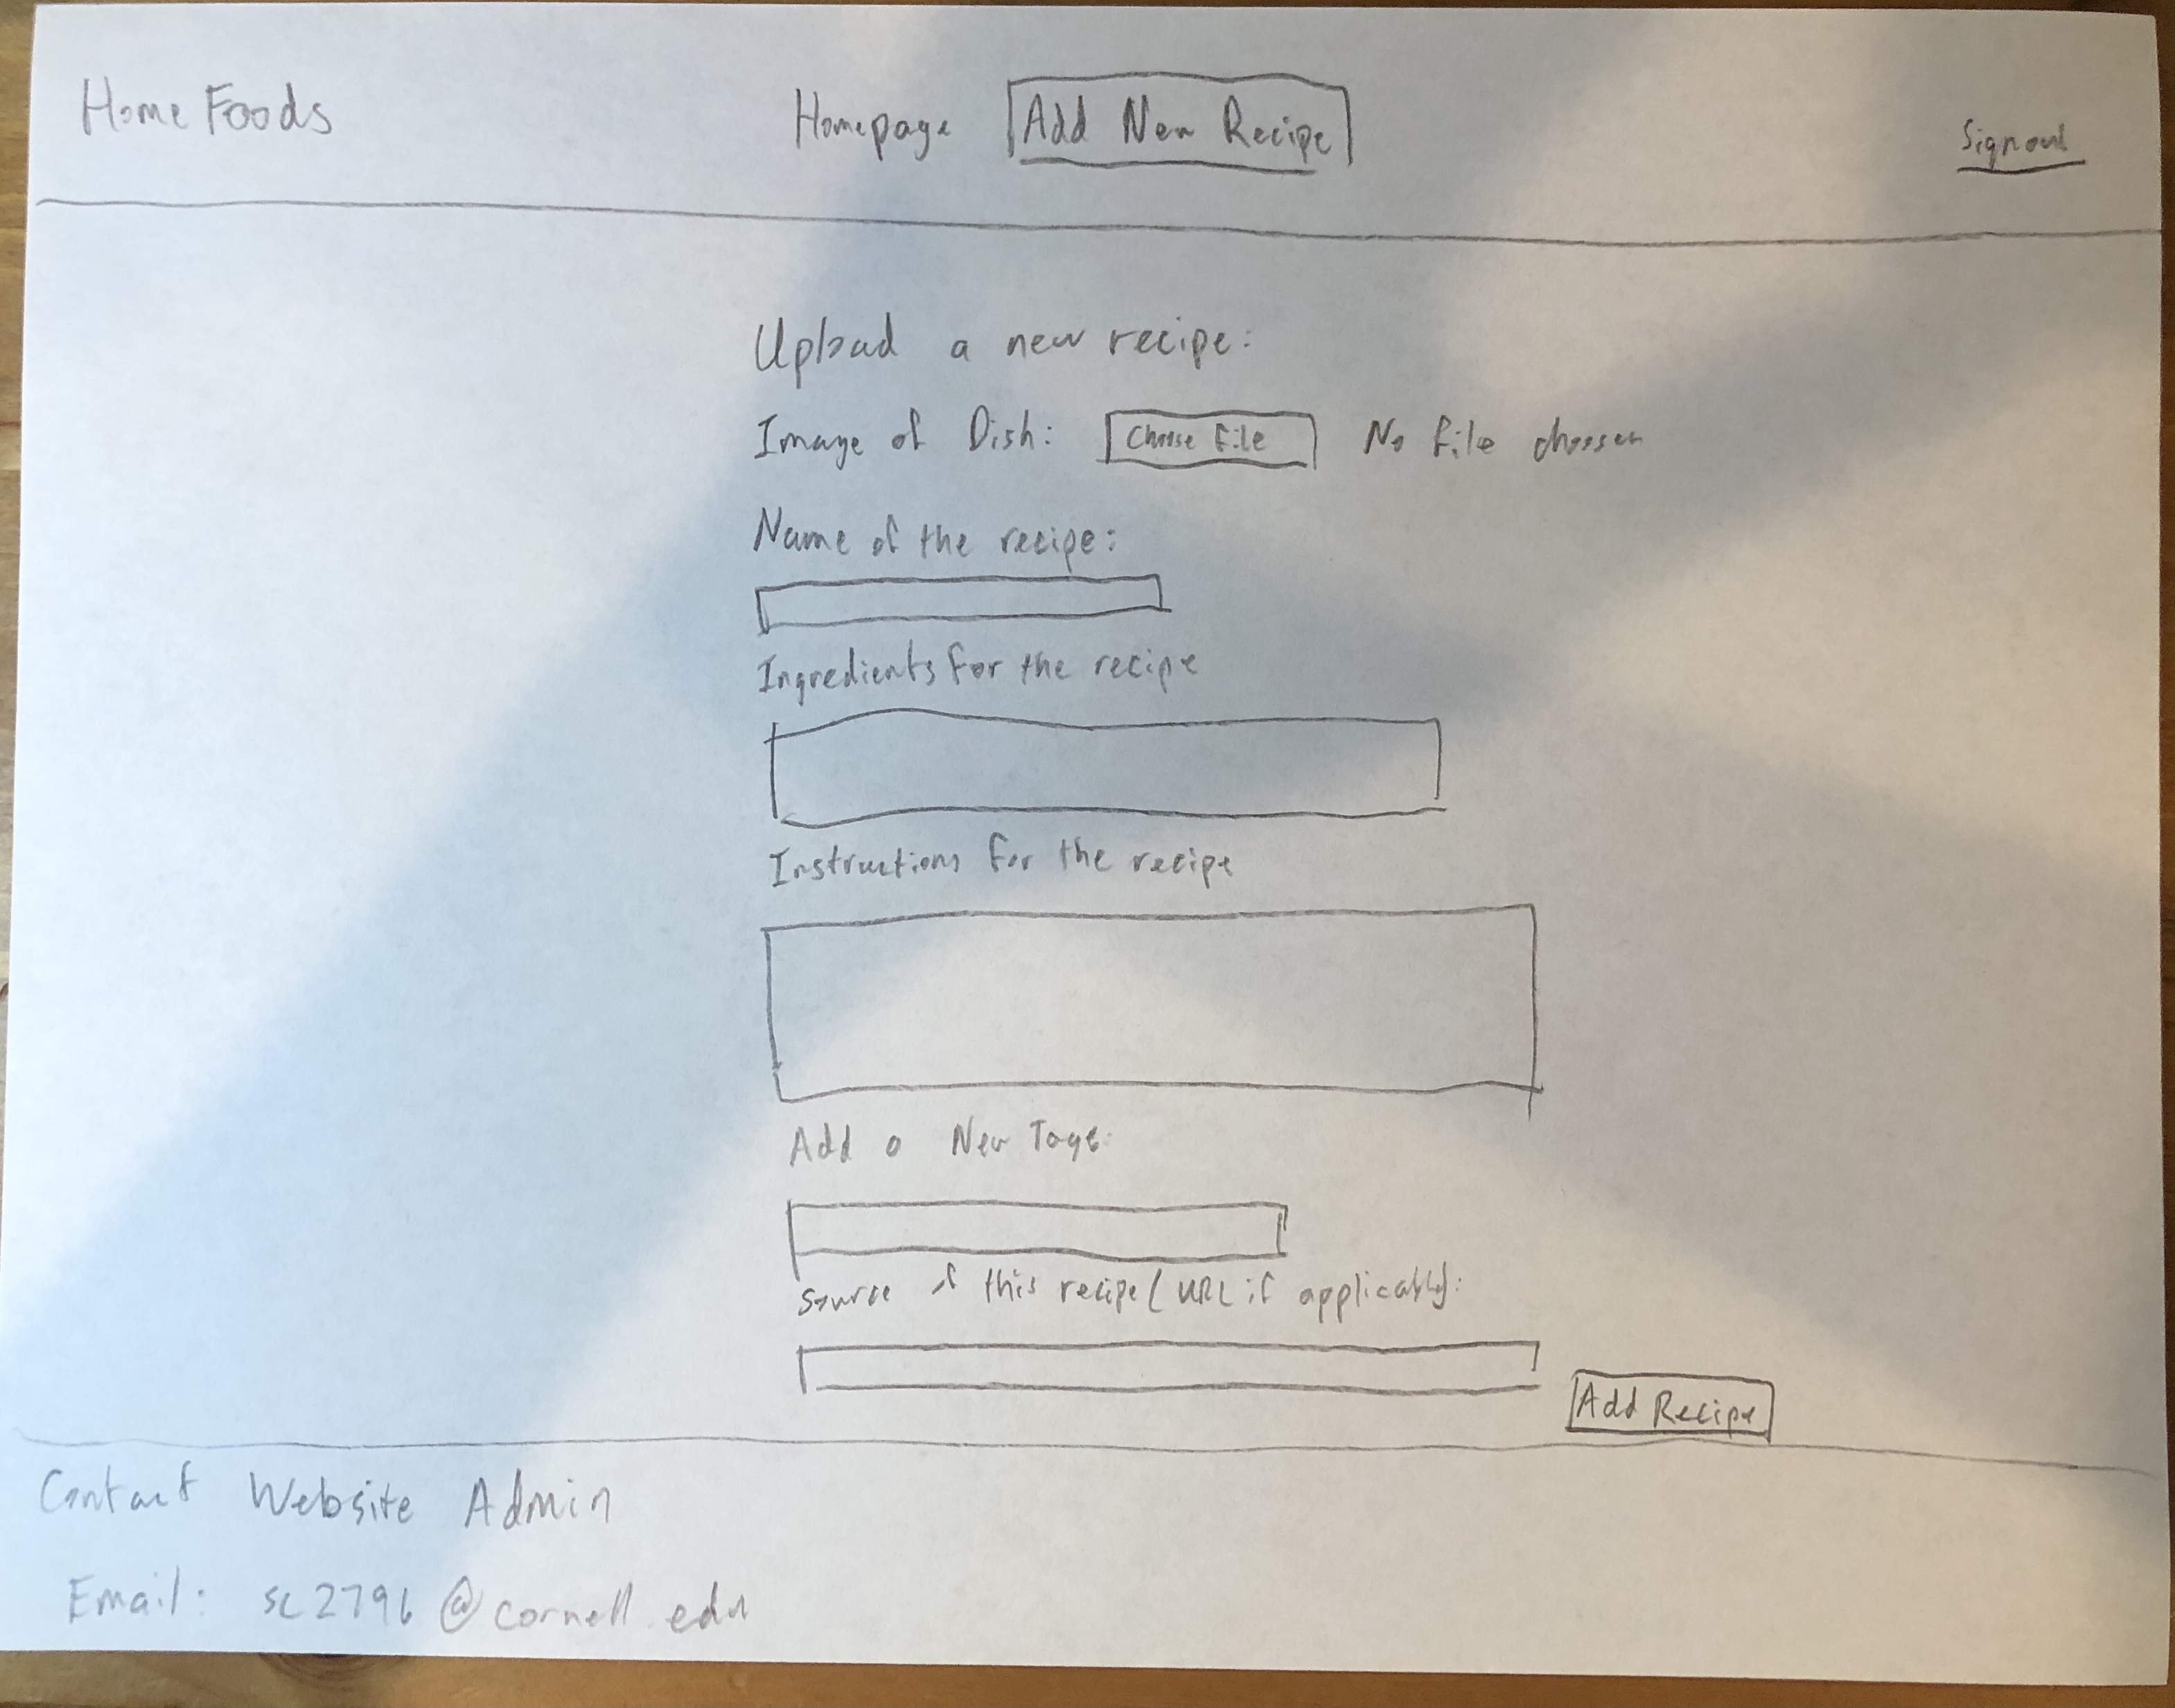 Home Foods
Homepage Add New Recipe
Signout
Upload a new recipe:
Image of Dish: Choose File No file chosen
Name of the recipe:
Ingredients for the recipe
Instructions for the recipe
Add a New Tags:
Source of this recipe (URL if applicable):
Add Recipe
Contact Website Admin
Email: sc2796@cornell.edu